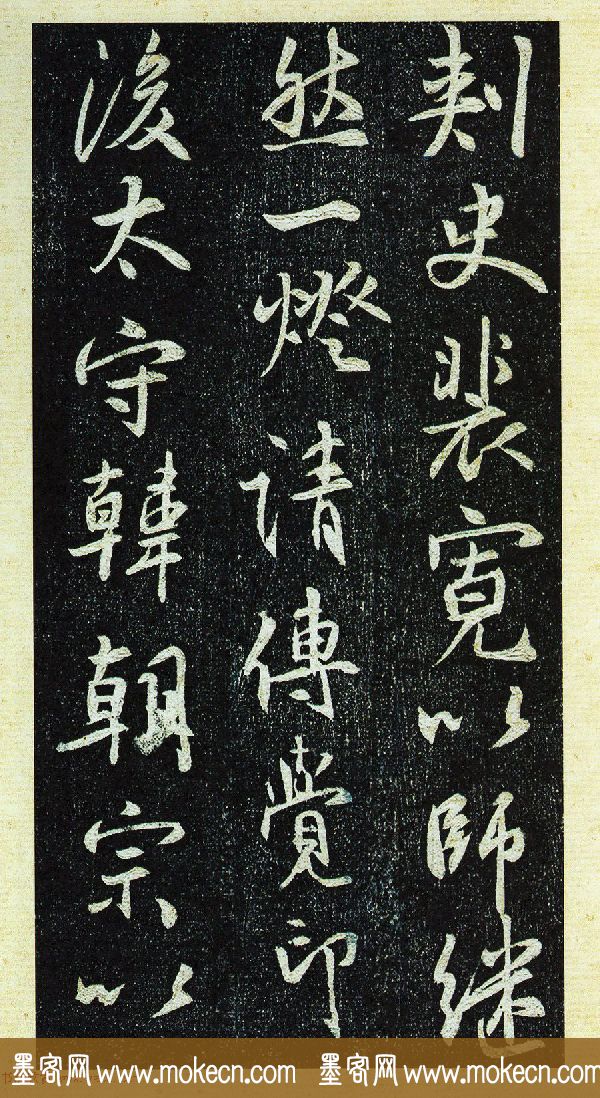 刺史裴寬以師繼
然一燈請傳覺印
後太守韓朝宗以
墨客网 www.mokecn.com 墨客网 www.mokecn.com